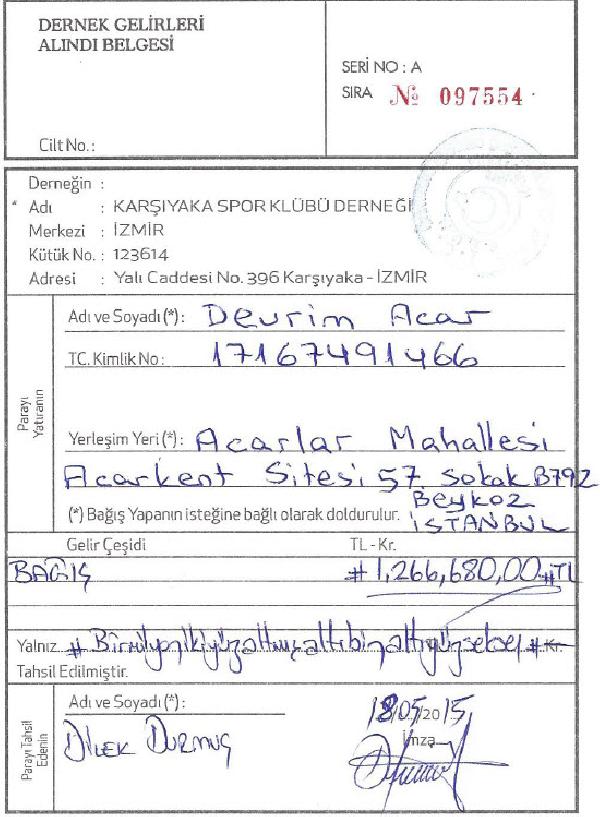 DERNEK GELİRLERİ
ALINDI BELGESİ
SERİ NO : A
SIRA № 097554
Cilt No. :
Derneğin :
* Adı : KARŞIYAKA SPOR KLÜBÜ DERNEĞİ
Merkezi : İZMİR
Kütük No. : 123614
Adresi : Yalı Caddesi No. 396 Karşıyaka - İZMİR
Parayı Yatıranın
Adı ve Soyadı (*) : Devrim Acar
TC. Kimlik No : 17167491466
Yerleşim Yeri (*) : Acarlar Mahallesi
Acarkent Sitesi 57. Sokak B792
Beykoz
(*) Bağış Yapanın isteğine bağlı olarak doldurulur. İSTANBUL
Gelir Çeşidi TL - Kr.
BAĞIŞ # 1,266,680,00.-#TL
Yalnız # Birmilyonikiyüzaltmışaltıbinaltıyüzseksen # Kr.
Tahsil Edilmiştir.
Parayı Tahsil Edenin
Adı ve Soyadı (*) : 18/05/2015
DİLEK DURMUŞ İmza